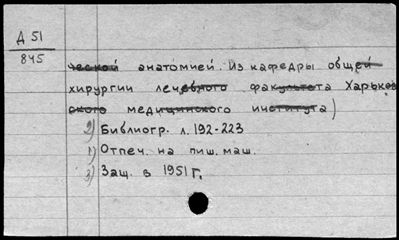 Д 51
845
ческой анатомией. Из кафедры общей
хирургии лечебного факультета Харьков
ского медицинского института)
2) Библиогр. л. 192-223
1) Отпеч. на пиш. маш.
3) Защ. в 1951 г.